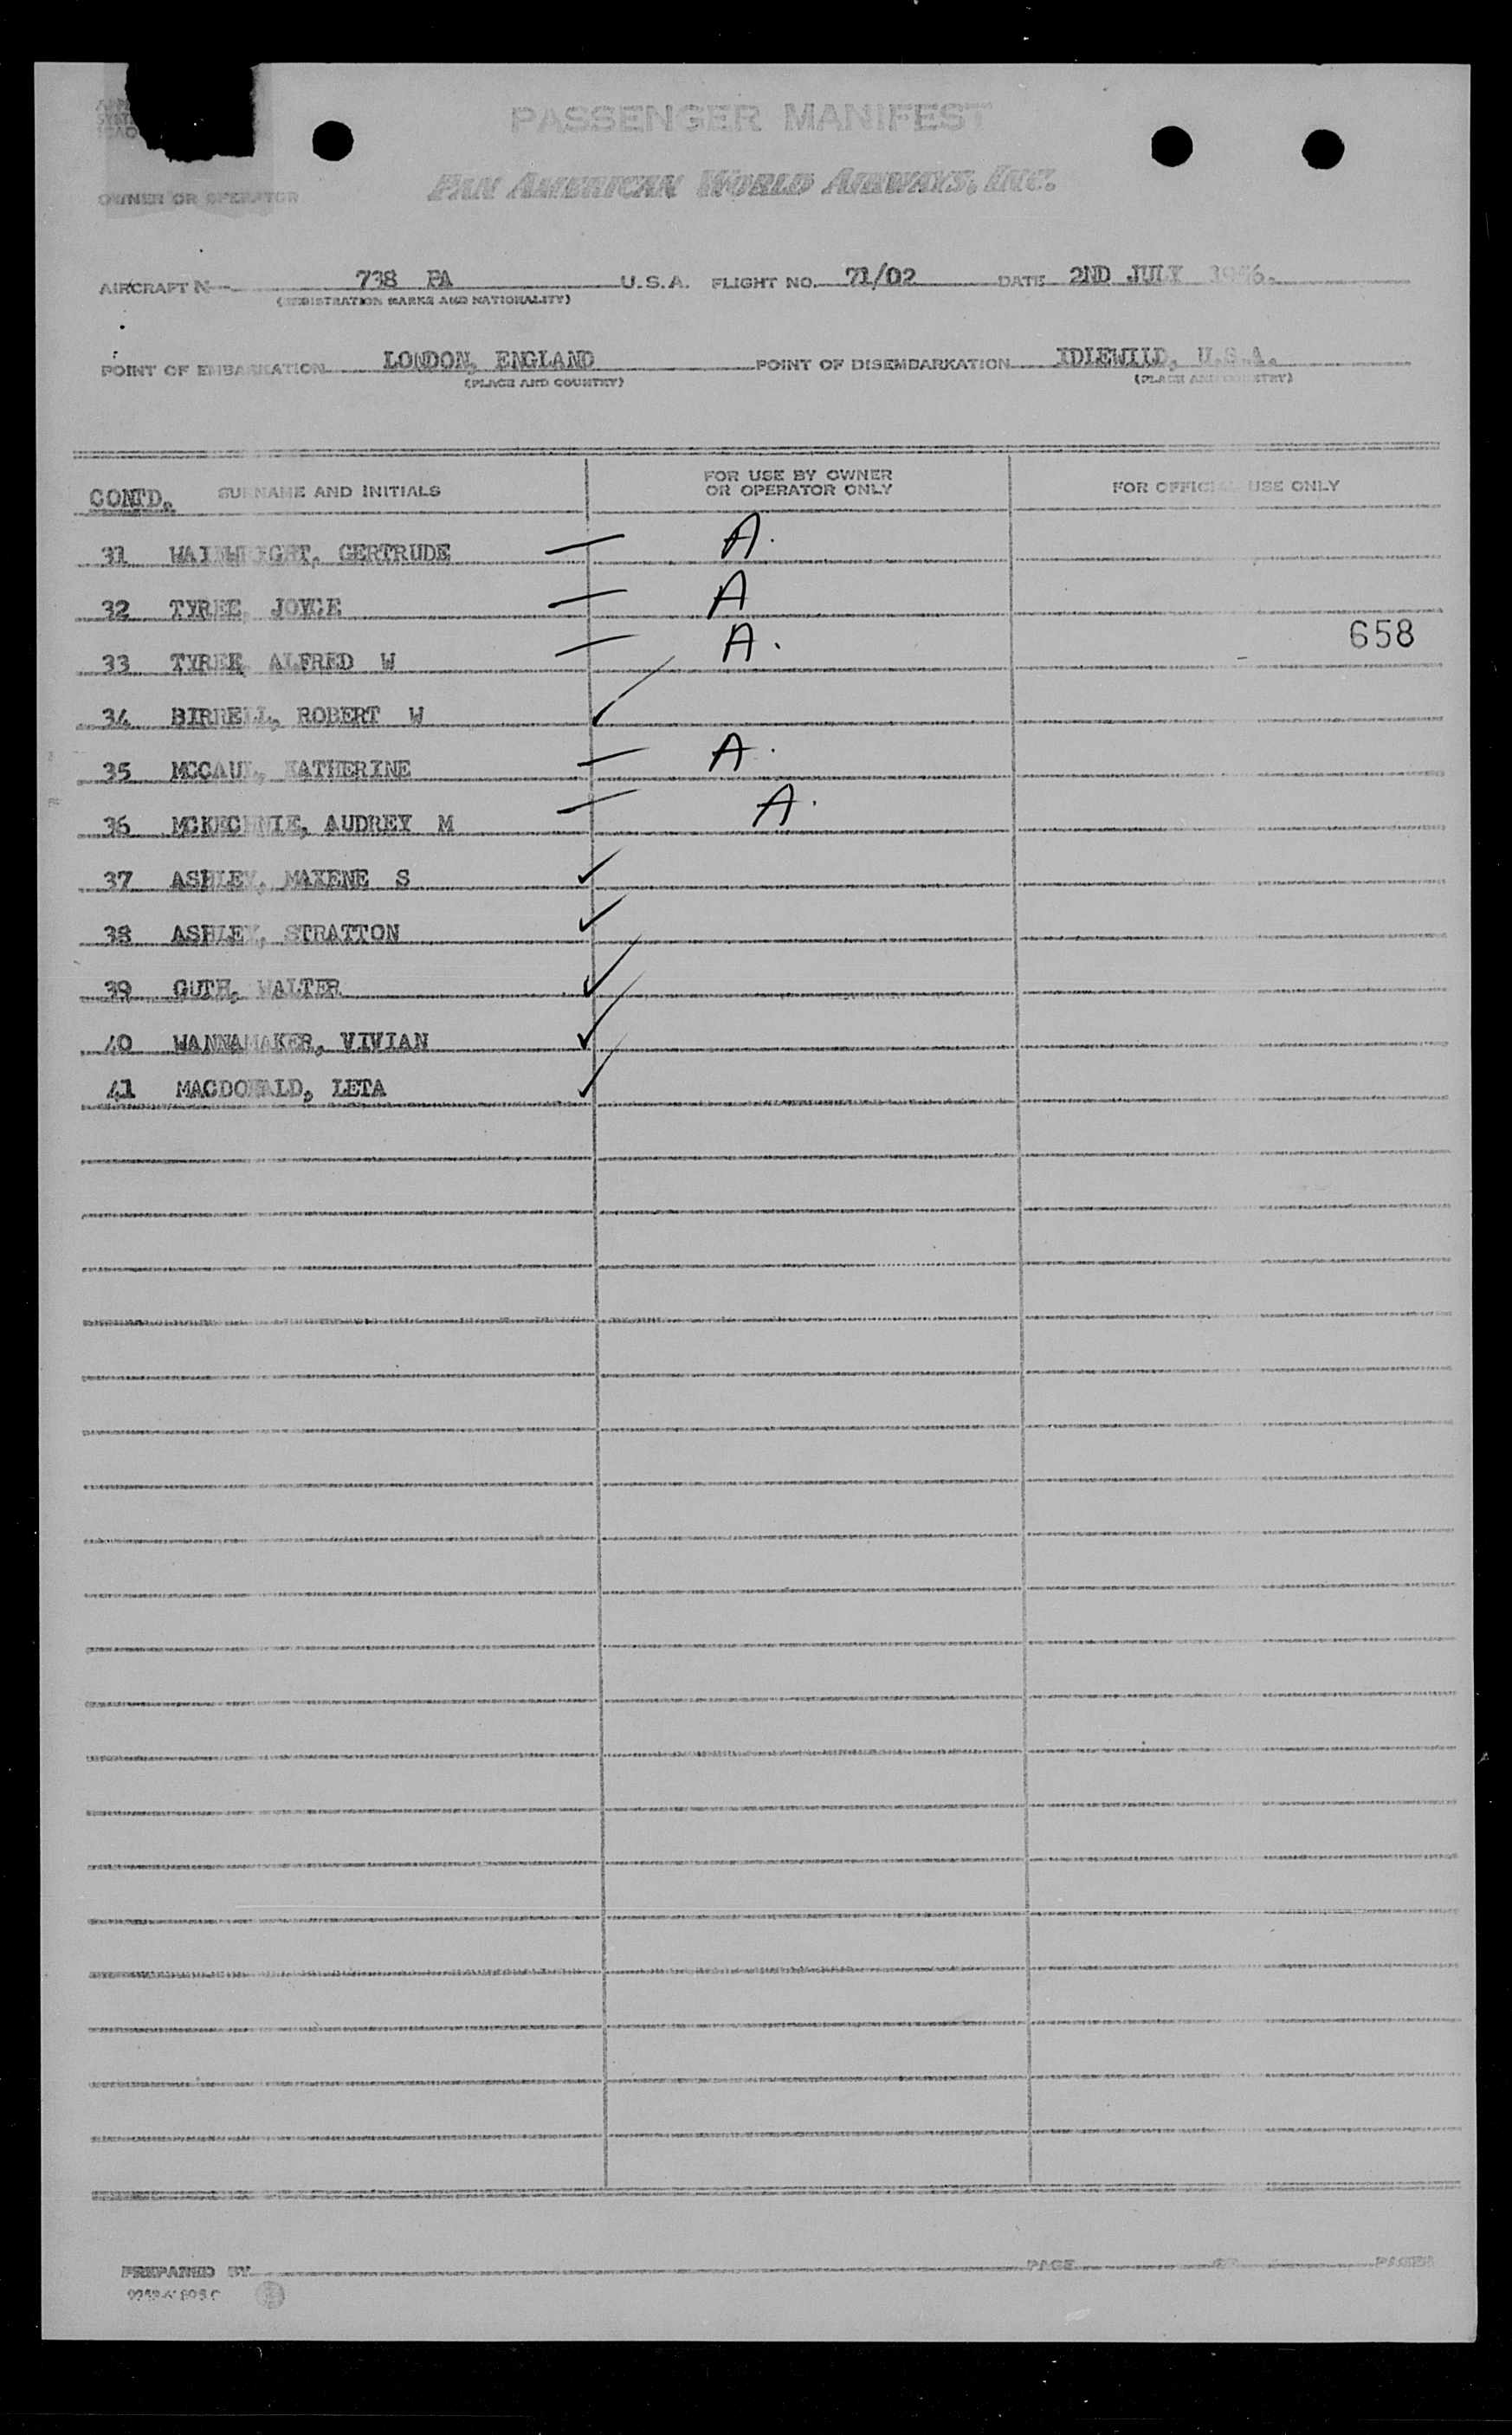 PASSENGER MANIFEST
PAN AMERICAN WORLD AIRWAYS, INC.
OWNER OR OPERATOR
AIRCRAFT N 738 PA U.S.A. FLIGHT NO. 71/02 DATE 2ND JULY
(REGISTRATION MARKS AND NATIONALITY)
POINT OF EMBARKATION LONDON, ENGLAND POINT OF DISEMBARKATION IDLEWILD, U.S.A.
(PLACE AND COUNTRY) (PLACE AND COUNTRY)
CONTD. SURNAME AND INITIALS FOR USE BY OWNER OR OPERATOR ONLY FOR OFFICIAL USE ONLY
31 WAINWRIGHT, GERTRUDE — A.
32 TYREE, JOYCE — A
33 TYREE, ALFRED W — A.
658
34 BIRRELL, ROBERT W ✓
35 MCCAUL, KATHERINE — A.
36 MCKECHNIE, AUDREY M — A.
37 ASHLEY, MAXENE S ✓
38 ASHLEY, STRATTON ✓
39 GUTH, WALTER ✓
40 WANNAMAKER, VIVIAN ✓
41 MACDONALD, LETA ✓
PREPARED BY PAGE PAGES